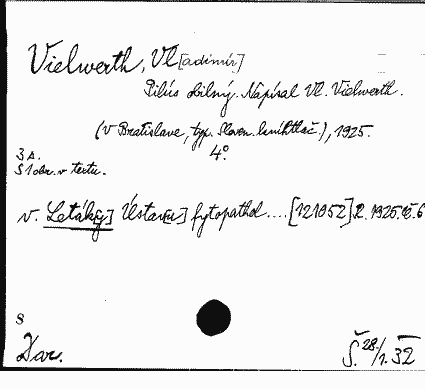 Vielwerth, Vl[adimír]
Pilús obilný. Napísal Vl. Vielwerth.
(V Bratislave, typ. Sloven. kníhtlač.), 1925.
3 s. 4°.
S 1 obr. v textu.
v. Leták[y] Ústav[u] fytopathol....[121052] R. 1925. č. 6
s
Dar. Š. 28/1. 32